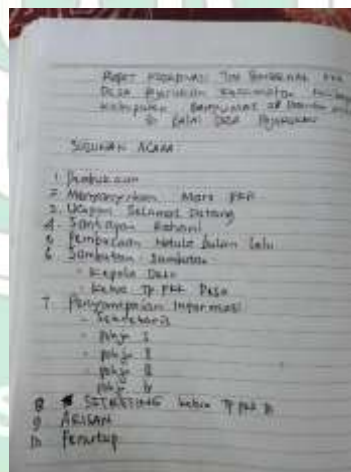 RAPAT KOORDINASI TIM PENGGERAK PKK
DESA Kecamatan
Kabupaten BANYUMAS
Di BALAI DESA
SUSUNAN ACARA
1. Pembukaan
2. Menyanyikan Mars PKK
3. Ucapan Selamat Datang
4. Santapan Rohani
5. Pembacaan Notula bulan lalu
6. Sambutan Sambutan
- Kepala Desa
- Ketua TP. PKK Desa
7. Penyampaian Informasi
- Sekretaris
- Pokja I
- Pokja II
- Pokja III
- Pokja IV
8 Ketua TP PKK D
9 ARISAN
10 Penutup